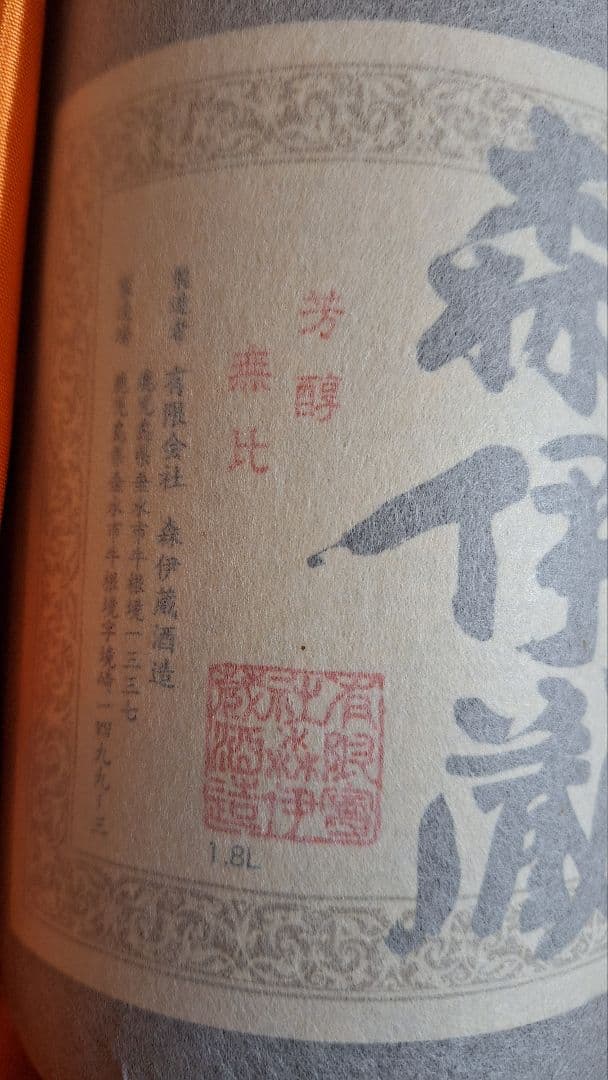 森伊蔵
芳醇
無比
製造者 有限会社 森伊蔵酒造
鹿児島県垂水市牛根境一三三七
製造場 鹿児島県垂水市牛根境字境崎一四九九ー三
有限會
社森伊
蔵酒造
1.8L